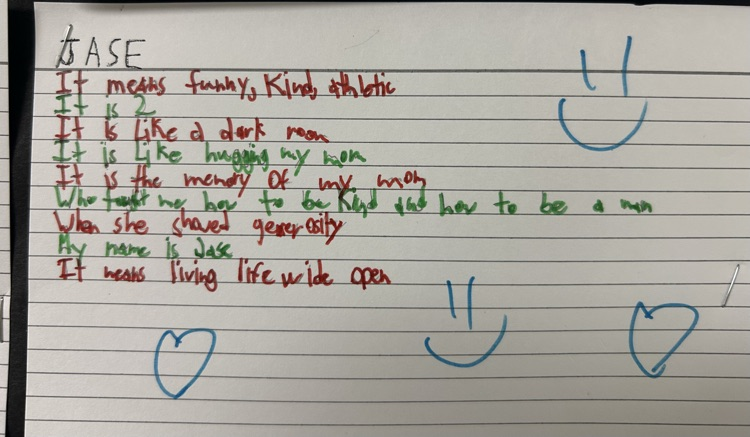 JASE
It means funny, Kind, athletic
It is 2
It is Like a dark room
It is Like hugging my mom
It is the memory Of my mom
Who taught me how to be Kind and how to be a man
When she showed generosity
My name is Jase
It means living life wide open